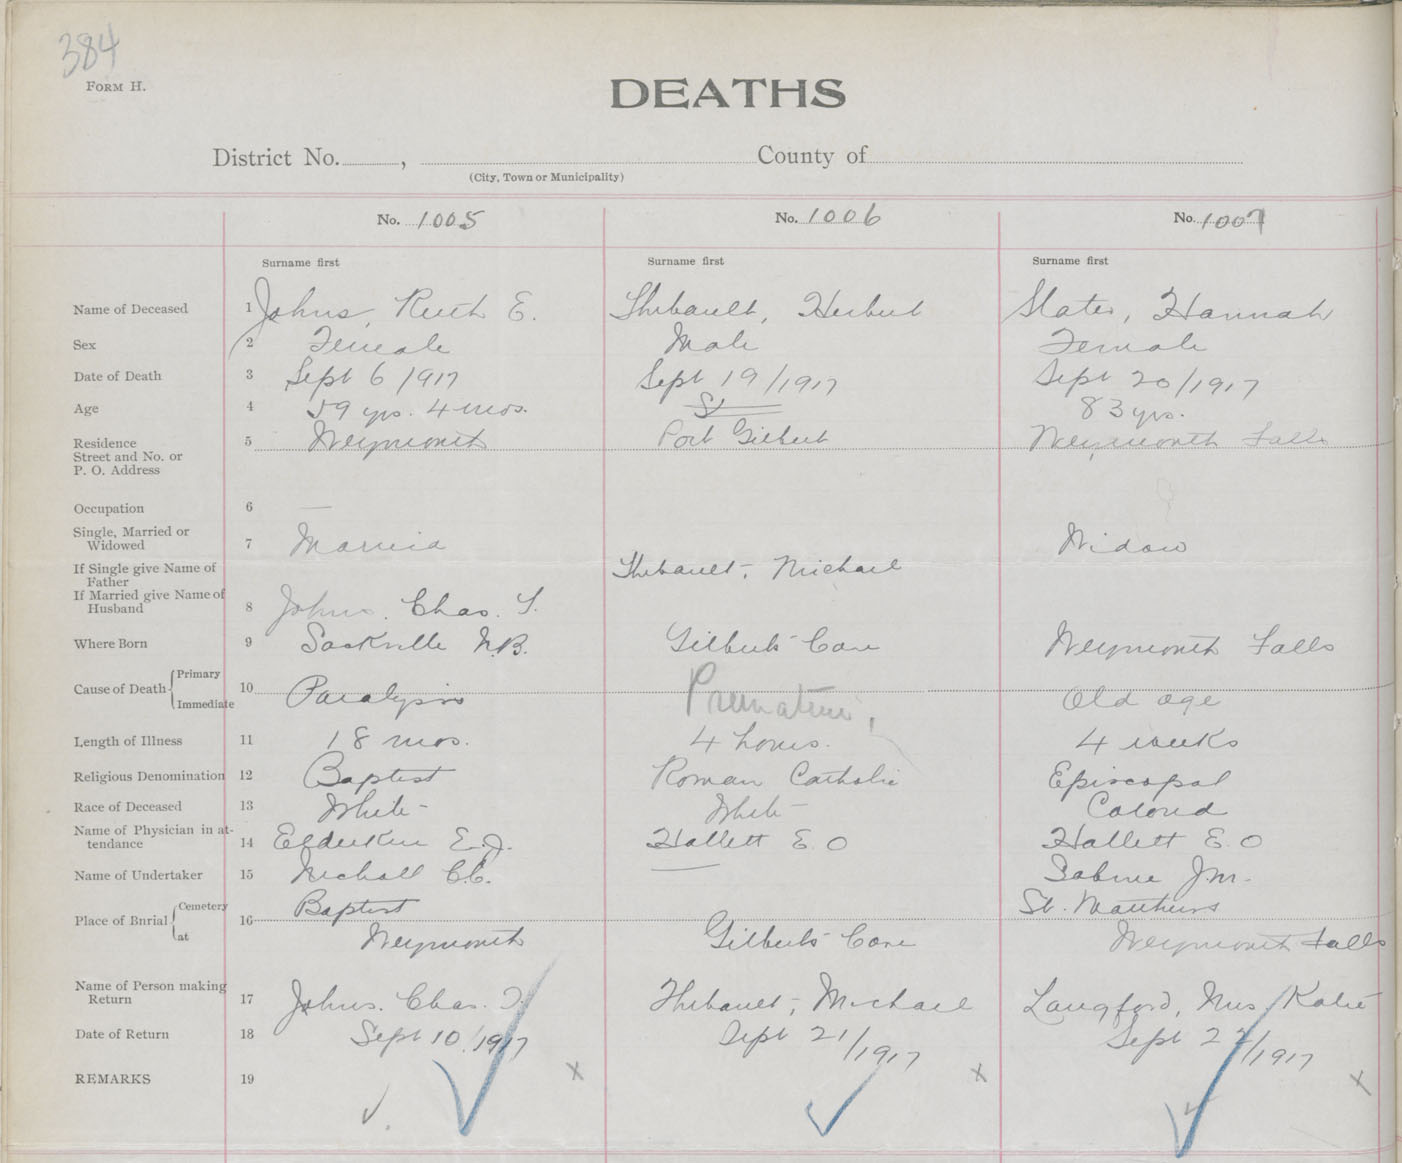 384
FORM H.
DEATHS
District No. , County of
(City, Town or Municipality)
No. 1005 No. 1006 No. 1007
Surname first Surname first Surname first
Name of Deceased 1 Johns, Ruth E. Thibault, Herbert Slater, Hannah
Sex 2 Female Male Female
Date of Death 3 Sept 6/1917 Sept 19/1917 Sept 20/1917
Age 4 59 yrs. 4 mos. 83 yrs.
Residence 5 Weymouth Port Gilbert Weymouth Falls
Street and No. or
P. O. Address
Occupation 6 —
Single, Married or
Widowed 7 Married Widow
If Single give Name of Thibault, Michael
Father
If Married give Name of
Husband 8 Johns. Chas. T.
Where Born 9 Sackville N.B. Gilberts Cove Weymouth Falls
Cause of Death Primary
10 Paralysis Premature Old age
Immediate
Length of Illness 11 18 mos. 4 hours. 4 weeks
Religious Denomination 12 Baptist Roman Catholic Episcopal
Race of Deceased 13 White White Colored
Name of Physician in at-
tendance 14 Elderkin E.J. Hallett E. O Hallett E. O
Name of Undertaker 15 Nichols C.C. — Sabine J.M.
Place of Burial Cemetery 16 Baptist St. Matthews
at Weymouth Gilberts Cove Weymouth Falls
Name of Person making
Return 17 Johns. Chas. T. Thibault, Michael Langford, Mrs Katie
Date of Return 18 Sept 10/1917 Sept 21/1917 Sept 22/1917
REMARKS 19 x x x